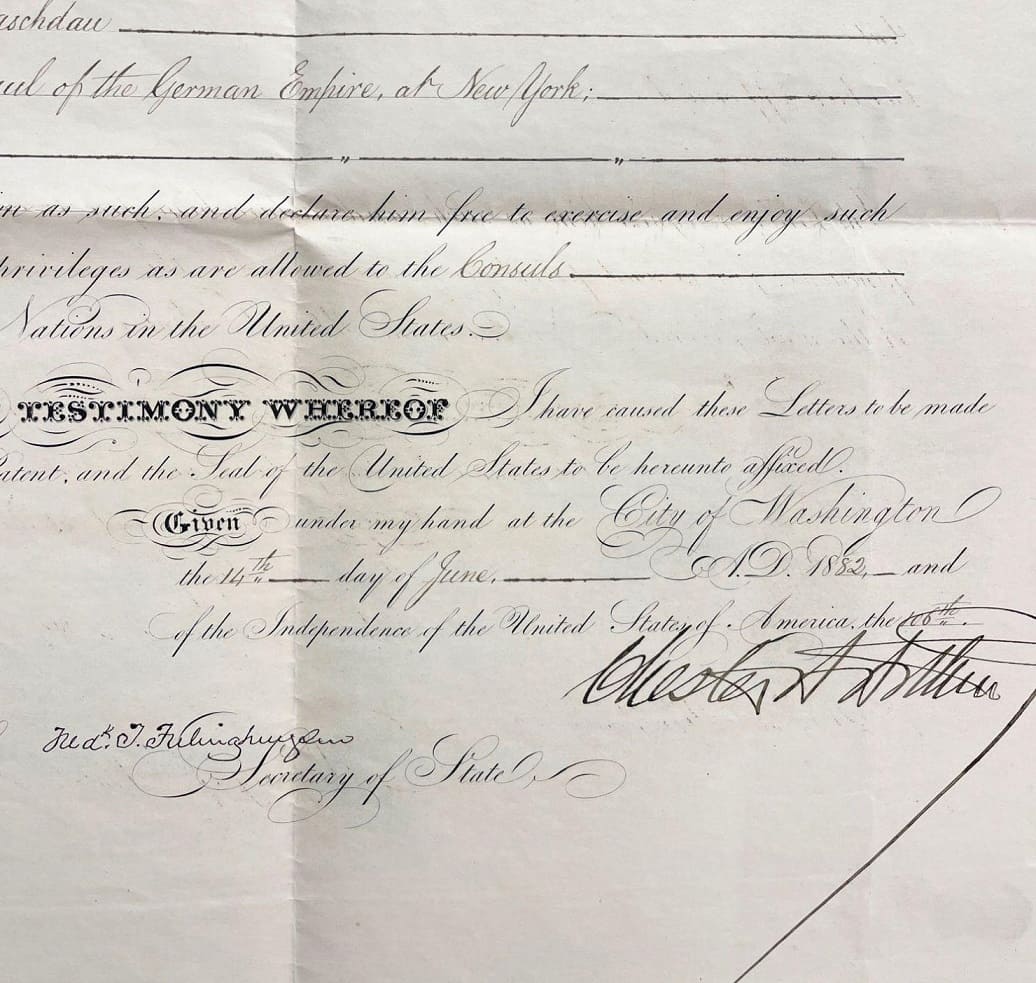 aschdau
ul of the German Empire, at New York;
" "
n as such; and declare him free to exercise and enjoy such
privileges as are allowed to the Consuls
Nations in the United States.
TESTIMONY WHEREOF I have caused these Letters to be made
Patent, and the Seal of the United States to be hereunto affixed.
Given under my hand at the City of Washington
the 14th day of June, A.D. 1882, and
of the Independence of the United States of America, the 106th.
Chester A Arthur
Fredk. T. Frelinghuysen
Secretary of State,